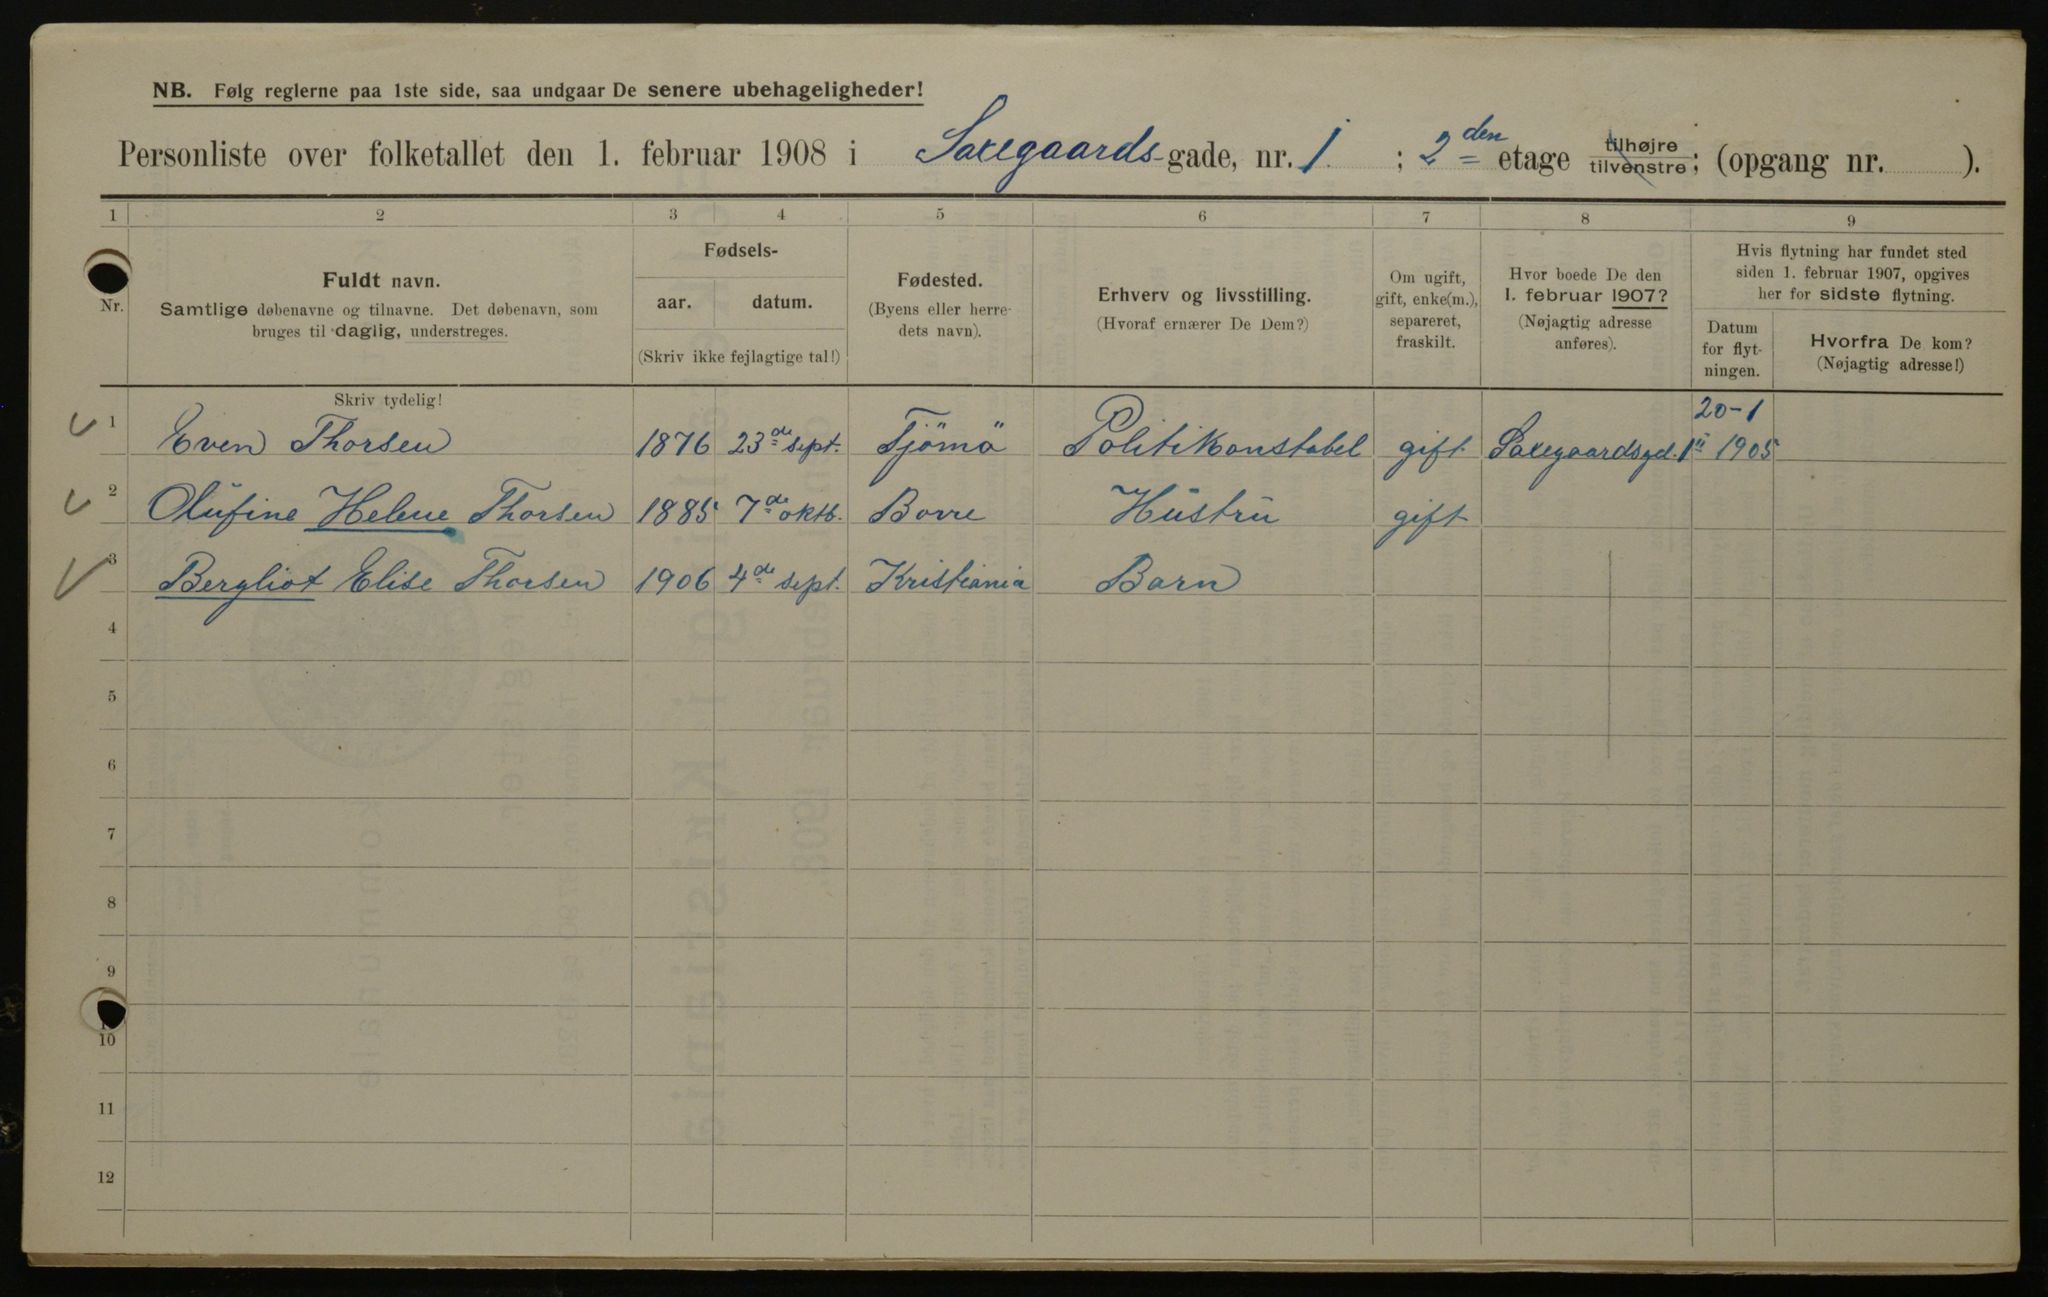 NB. Følg reglerne paa 1ste side, saa undgaar De senere ubehageligheder!
Personliste over folketallet den 1. februar 1908 i Saxegaards-gade, nr. 1 ; 2den etage tilhøjre tilvenstre; (opgang nr. ).
1 2 3 4 5 6 7 8 9
Nr.
Fuldt navn.
Samtlige døbenavne og tilnavne. Det døbenavn, som
bruges til daglig, understreges.
Fødsels-
aar. datum.
(Skriv ikke fejlagtige tal!)
Fødested.
(Byens eller herre-
dets navn).
Erhverv og livsstilling.
(Hvoraf ernærer De Dem?)
Om ugift,
gift, enke(m.),
separeret,
fraskilt.
Hvor boede De den
1. februar 1907?
(Nøjagtig adresse
anføres).
Hvis flytning har fundet sted
siden 1. februar 1907, opgives
her for sidste flytning.
Datum
for flyt-
ningen.
Hvorfra De kom?
(Nøjagtig adresse!)
Skriv tydelig!
20-1
1 Even Thorsen 1876 23de sept. Tjömö Politikonstabel gift Saxegaardsgd. 1II 1905
2 Olufine Helene Thorsen 1885 7de oktb. Borre Hustru gift
3 Bergliot Elise Thorsen 1906 4de sept. Kristiania Barn
4
5
6
7
8
9
10
11
12